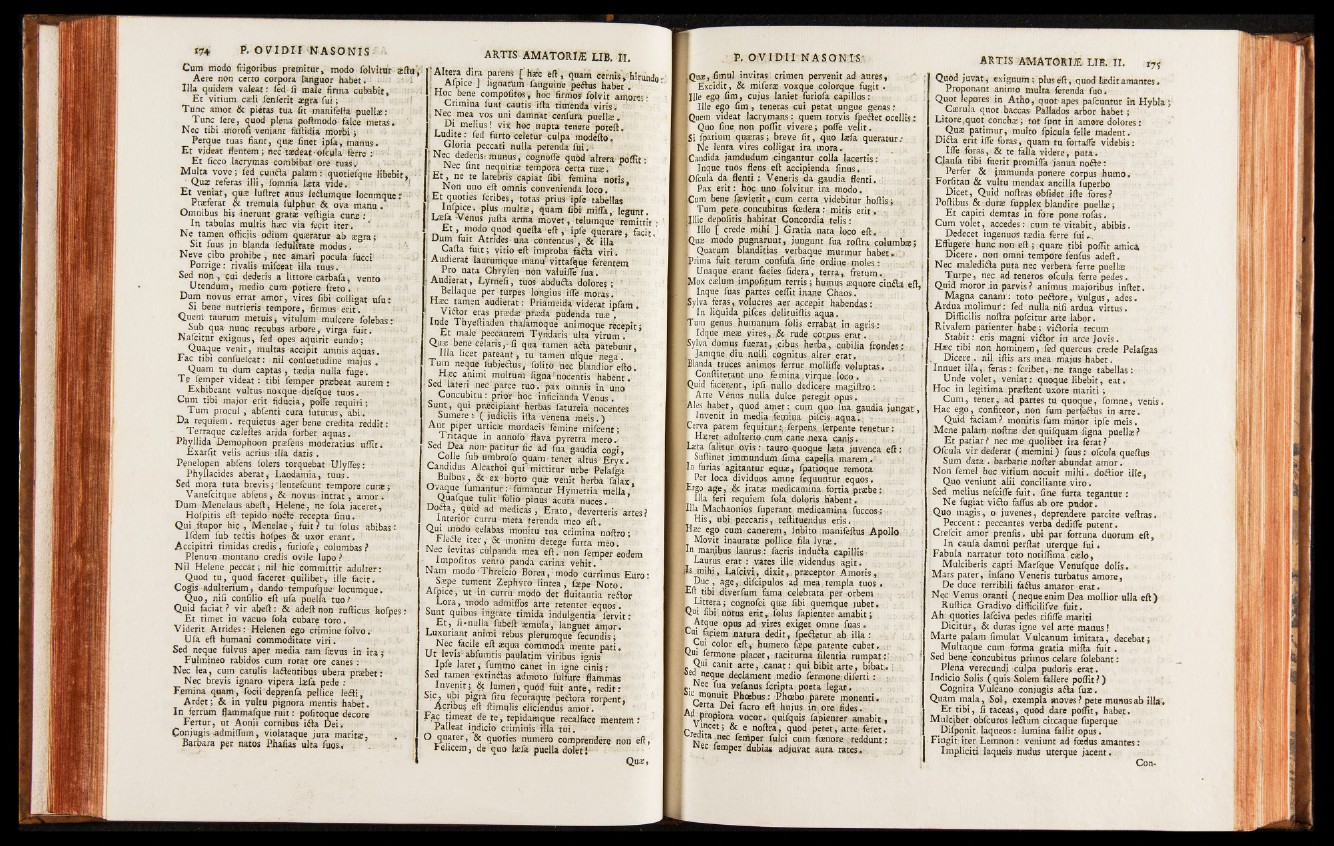 174 P. OVIDII NASONIS
Cum modo frigoribus premitur, modo solvitur æstu,
Aere non certo corpora languor habet.
Illa quidem valeat: sed si male firma cubabit,
Et vitium cæli senserit ægra sui;
Tunc amor & pietas tua sit manifesta puellæ:
Tunc sere, quod plena postmodo falce metas.
Nec tibi morosi veniant fastidia morbi;
Perque tuas fiant, quæ sinet ipsa, manus.
Et videat flentem; nec tædeat oscula ferre:
Et sicco lacrymas combibat ore tuas.
Multa vove; sed cuncta palam: quotiesque libebit,
Quæ referas illi, somnia læta vide.
Et veniat, quæ lustret anus lectumque locumque:
Præferat & tremula sulphur & ova manu.
Omnibus his inerunt gratæ vestigia curæ:
In tabulas multis hæc via fecit iter.
Ne tamen officiis odium quæratur ab ægra;
Sit suus in blanda sedulitate modus.
Neve cibo prohibe, nec amari pocula succi
Porrige: rivalis misceat illa tuus.
Sed non, cui dederis a littore carbasa, vento
Utendum, medio cum potiere freto.
Dum novus errat amor, vires sibi colligat usu:
Si bene nutrieris tempore, firmus erit.
Quem taurum metuis, vitulum mulcere solebas:
Sub qua nunc recubas arbore, virga fuit.
Nascitur exiguus, sed opes aquirit eundo;
Quaque venit, multas accipit amnis aquas.
Fac tibi consuescat: nil consuetudine majus.
Quam tu dum captas, tædia nulla fuge.
Te semper videat: tibi semper præbeat aurem:
Exhibeant vultus noxque diesque tuos.
Cum tibi major erit fiducia, posse requiri;
Tum procul, absenti cura futurus, abi.
Da requiem. requietus ager bene credita reddit:
Terraque cælestes arida sorbet aquas.
Phyllida Demophoon præsens moderatius ussit.
Exarsit velis acrius illa datis.
Penelopen absens solers torquebat Ulysses:
Phyllacides aberat, Laodamia, tuus.
Sed mora tuta brevis; lentescunt tempore curæ;
Vanescitque absens, & novus intrat, amor.
Dum Menelaus abest, Helene, ne sola jaceret,
Hospitis est tepido nocte recepta sinu.
Qui stupor hic, Menelae, fuit? tu solus abibas:
Isdem sub tectis hospes & uxor erant.
Accipitri timidas credis, furiose, columbas?
Plenum montano credis ovile lupo?
Nil Helene peccat; nil hic committit adulter:
Quod tu, quod faceret quilibet, ille facit.
Cogis adulterium, dando tempusque locumque.
Quo, nisi consilio est usa puella tuo?
Quid faciat? vir abest: & adest non rusticus hospes:
Et timet in vacuo sola cubare toro.
Viderit Atrides: Helenen ego crimine solvo.
Usa est humani commoditate viri.
Sed neque fulvus aper media tam sævus in ira;
Fulmineo rabidos cum rotat ore canes:
Nec lea, cum catulis lactentibus ubera præbet:
Nec brevis ignaro vipera læsa pede:
Femina quam, socii deprensa pellice lecti,
Ardet; & in vultu pignora mentis habet.
In ferrum flammasque ruit: positoque decore
Fertur, ut Aonii cornibus icta Dei.
Conjugis admissum, violataque jura maritæ,
Barbara per natos Phasias ulta suos.
ARTIS AMATORIÆ LIB. II.
Altera dira parens [ hæc est, quam cernis, hirundo:
Aspice ] signatum sanguine pectus habet.
Hoc bene compositos, hoc firmos solvit amores:
Crimina sunt cautis ista timenda viris.
Nec mea vos uni damnat censura puellæ.
Di melius! vix hoc nupta tenere potest.
Ludite: sed furto celetur culpa modesto.
Gloria peccati nulla petenda sui.
Nec dederis munus, cognosse quod altera possit:
Nec sint nequitiæ tempora certa tuæ.
Et, ne te latebris capiat sibi femina notis,
Non uno est omnis convenienda loco.
Et quoties scribes, totas prius ipse tabellas
Inspice. plus multæ, quam sibi missa, legunt.
Læsa Venus justa arma movet, telumque remittit:
Et, modo quod questa est, ipse querare, facit.
Dum fuit Atrides una contentus, & illa
Casta fuit; vitio est improba facta viri.
Audierat laurumque manu vittasque ferentem
Pro nata Chrysen non valuisse sua.
Audierat, Lyrnesi, tuos abducta dolores;
Bellaque per turpes longius isse moras.
Hæc tamen audierat: Priameida viderat ipsam.
Victor eras prædæ præda pudenda tuæ,
Inde Thyestiaden thalamoque animoque recepit;
Et male peccantem Tyndaris ulta virum.
Quæ bene celaris, si qua tamen acta patebunt,
Illa licet pateant, tu tamen usque nega.
Tum neque subjectus, solito nec blandior esto.
Hæc animi multum signa nocentis habent.
Sed lateri nec parce tuo. pax omnis in uno
Concubitu: prior hoc inficianda Venus.
Sunt, qui præcipiant herbas satureia nocentes
Sumere: ( judiciis ista venena meis. )
Aut piper urticæ mordacis semine miscent;
Tritaque in annoso flava pyretra mero.
Sed Dea non patitur sic ad sua gaudia cogi,
Colle sub umbroso quam tenet altus Eryx.
Candidus Alcathoi qui mittitur urbe Pelasga
Bulbus, & ex horto quæ venit herba salax,
Ovaque sumantur: sumantur Hymettia mella,
Quasque tulit folio pinus acuta nuces.
Docta, quid ad medicas, Erato, deverteris artes?
Interior curru meta terenda meo est.
Qui modo celabas monitu tua crimina nostro;
Flecte iter, & monitu detege furta meo.
Nec levitas culpanda mea est. non semper eodem
Impositos vento panda carina vehit.
Nam modo Threicio Borea, modo currimus Euro:
Sæpe tument Zephyro lintea, sæpe Noto.
Aspice, ut in curru modo det fluitantia rector
Lora, modo admissos arte retentet equos.
Sunt quibus ingrate timida indulgentia servit:
Et, si nulla subest æmula, languet amor.
Luxuriant animi rebus plerumque secundis;
Nec facile est æqua commoda mente pati.
Ut levis absumtis paulatim viribus ignis
Ipse latet, summo canet in igne cinis:
Sed tamen extinctas admoto sulfure flammas
Invenit; & lumen, quod fuit ante, redit:
Sic, ubi pigra situ securaque pectora torpent,
Acribus est stimulis eliciendus amor.
Fac timeat de te, tepidamque recalface mentem:
Palleat indicio criminis illa tui.
O quater, & quoties numero comprendere non est,
Felicem, de quo læsa puella dolet!
Quæ,
P. OVIDII NASONIS
Quæ, simul invitas crimen pervenit ad aures,
Excidit, & miseræ voxque colorque fugit.
Ille ego sim, cujus laniet furiosa capillos:
Ille ego sim, teneras cui petat ungue genas:
Quem videat lacrymans: quem torvis spectet ocellis:
Quo sine non possit vivere; posse velit.
Si spatium quæras; breve sit, quo læsa queratur:
Ne lenta vires colligat ira mora.
Candida jamdudum cingantur colla lacertis:
Inque tuos flens est accipienda sinus.
Oscula da flenti: Veneris da gaudia flenti.
Pax erit: hoc uno solvitur ira modo.
Cum bene sævierit, cum certa videbitur hostis;
Tum pete concubitus fœdera: mitis erit.
Illic depositis habitat Concordia telis:
Illo [ crede mihi ] Gratia nata loco est.
Quæ modo pugnarunt, jungunt sua rostra columbæ;
Quarum blanditias verbaque murmur habet.
Prima fuit rerum confusa sine ordine moles:
Unaque erant facies sidera, terra, fretum.
Mox cælum impositum terris; humus æquore cincta est,
Inque suas partes cessit inane Chaos.
Sylva feras, volucres aer accepit habendas:
In liquida pisces delituistis aqua.
Tum genus humanum solis errabat in agris:
Idque meæ vires, & rude corpus erat.
Sylva domus fuerat, cibus herba, cubilia frondes:
Jamque diu nulli cognitus alter erat.
Blanda truces animos fertur mollisse voluptas.
Constiterant uno femina virque loco.
Quid facerent, ipsi nullo dedicere magistro:
Arte Venus nulla dulce peregit opus.
Ales habet, quod amet: cum quo sua gaudia jungat,
Invenit in media femina piscis aqua.
Cerva parem sequitur: serpens serpente tenetur:
Hæret adulterio cum cane nexa canis.
Læta salitur ovis: tauro quoque læta juvenca est:
Sustinet immundum sima capella marem.
In furias agitantur equæ, spatioque remota
Per loca dividuos amne sequuntur equos.
Ergo age, & iratæ medicamina fortia præbe:
Illa feri requiem sola doloris habent.
Illa Machaonios superant medicamina succos:
His, ubi peccaris, restituendus eris.
Hæc ego cum canerem, subito manifestus Apollo
Movit inauratæ pollice fila lyræ.
In manibus laurus: sacris inducta capillis
Laurus erat: vates ille videndus agit.
Is mihi, Lascivi, dixit, præceptor Amoris,
Duc, age, discipulos ad mea templa tuos.
Est tibi diversum fama celebrata per orbem
Littera; cognosci quæ sibi quemque jubet.
Qui sibi notus erit, solus sapienter amabit;
Atque opus ad vires exiget omne suas.
Cui faciem natura dedit, spectetur ab illa:
Cui color est, humero sæpe patente cubet.
Qui sermone placet, taciturna silentia rumpat:
Qui canit arte, canat: qui bibit arte, bibat.
Sed neque declament medio sermone diserti:
Nec sua vesanus scripta poeta legat.
Sic monuit Phœbus: Phœbo parete monenti.
Certa Dei sacro est hujus in ore fides.
Ad propiora vocor. quisquis sapienter amabit,
Vincet; & e nostra, quod petet, arte feret.
Credita nec semper sulci cum fœnore reddunt:
Nec semper dubias adjuvat aura rates.
ARTIS AMATORIÆ LIB. II. 175
Quod juvat, exiguum; plus est, quod lædit amantes.
Proponant animo multa ferenda suo.
Quot lepores in Atho, quot apes pascuntur in Hybla;
Cærula quot baccas Pallados arbor habet;
Litore quot conchæ; tot sunt in amore dolores:
Quæ patimur, multo spicula felle madent.
Dicta erit isse foras, quam tu fortasse videbis:
Isse foras, & te falsa videre, puta.
Clausa tibi fuerit promissa janua nocte:
Perfer & immunda ponere corpus humo.
Forsitan & vultu mendax ancilla superbo
Dicet, Quid nostras obsidet iste fores?
Postibus & duræ supplex blandire puellæ;
Et capiti demtas in fore pone rosas.
Cum volet, accedes: cum te vitabit, abibis.
Dedecet ingenuos tædia ferre sui.
Effugere hunc non est; quare tibi possit amica
Dicere. non omni tempore sensus adest.
Nec maledicta puta nec verbera ferre puellæ
Turpe, nec ad teneros oscula ferre pedes.
Quid moror in parvis? animus majoribus instet.
Magna canam: toto pectore, vulgus, ades.
Ardua molimur: sed nulla nisi ardua virtus.
Difficilis nostra poscitur arte labor.
Rivalem patienter habe; victoria tecum
Stabit: eris magni victor in arce Jovis.
Hæc tibi non hominem, sed quercus crede Pelasgas
Dicere. nil istis ars mea majus habet.
Innuet illa, feras: scribet, ne tange tabellas:
Unde volet, veniat: quoque libebit, eat.
Hoc in legitima præstent uxore mariti;
Cum, tener, ad partes tu quoque, somne, venis.
Hac ego, confiteor, non sum perfectus in arte.
Quid faciam? monitis sum minor ipse meis.
Mene palam nostræ det quisquam signa puellæ?
Et patiar? nec me quolibet ira ferat?
Oscula vir dederat (memini) suus: oscula questus
Sum data. barbarie noster abundat amor.
Non semel hoc vitium nocuit mihi. doctior ille,
Quo veniunt alii conciliante viro.
Sed melius nescisse fuit. sine furta tegantur:
Ne fugiat victo fassus ab ore pudor.
Quo magis, o juvenes, deprendere parcite vestras.
Peccent: peccantes verba dedisse putent.
Crescit amor prensis. ubi par fortuna duorum est,
In causa damni perstat uterque sui.
Fabula narratur toto notissima cælo,
Mulciberis capti Marsque Venusque dolis.
Mars pater, insano Veneris turbatus amore,
De duce terribili factus amator erat.
Nec Venus oranti (neque enim Dea mollior ulla est)
Rustica Gradivo difficilisve fuit.
Ah quoties lasciva pedes risisse mariti
Dicitur, & duras igne vel arte manus!
Marte palam simulat Vulcanum imitata, decebat;
Multaque cum forma gratia mista fuit.
Sed bene concubitus primos celare solebant:
Plena verecundi culpa pudoris erat.
Indicio Solis (quis Solem fallere possit?)
Cognita Vulcano conjugis acta suæ.
Quam mala, Sol, exempla moves? pete munus ab illa.
Et tibi, si taceas, quod dare possit, habet.
Mulciber obscuros lectum circaque superque
Disponit laqueos: lumina fallit opus.
Fingit iter Lemnon: veniunt ad fœdus amantes:
Impliciti laqueis nudus uterque jacent.
Con-